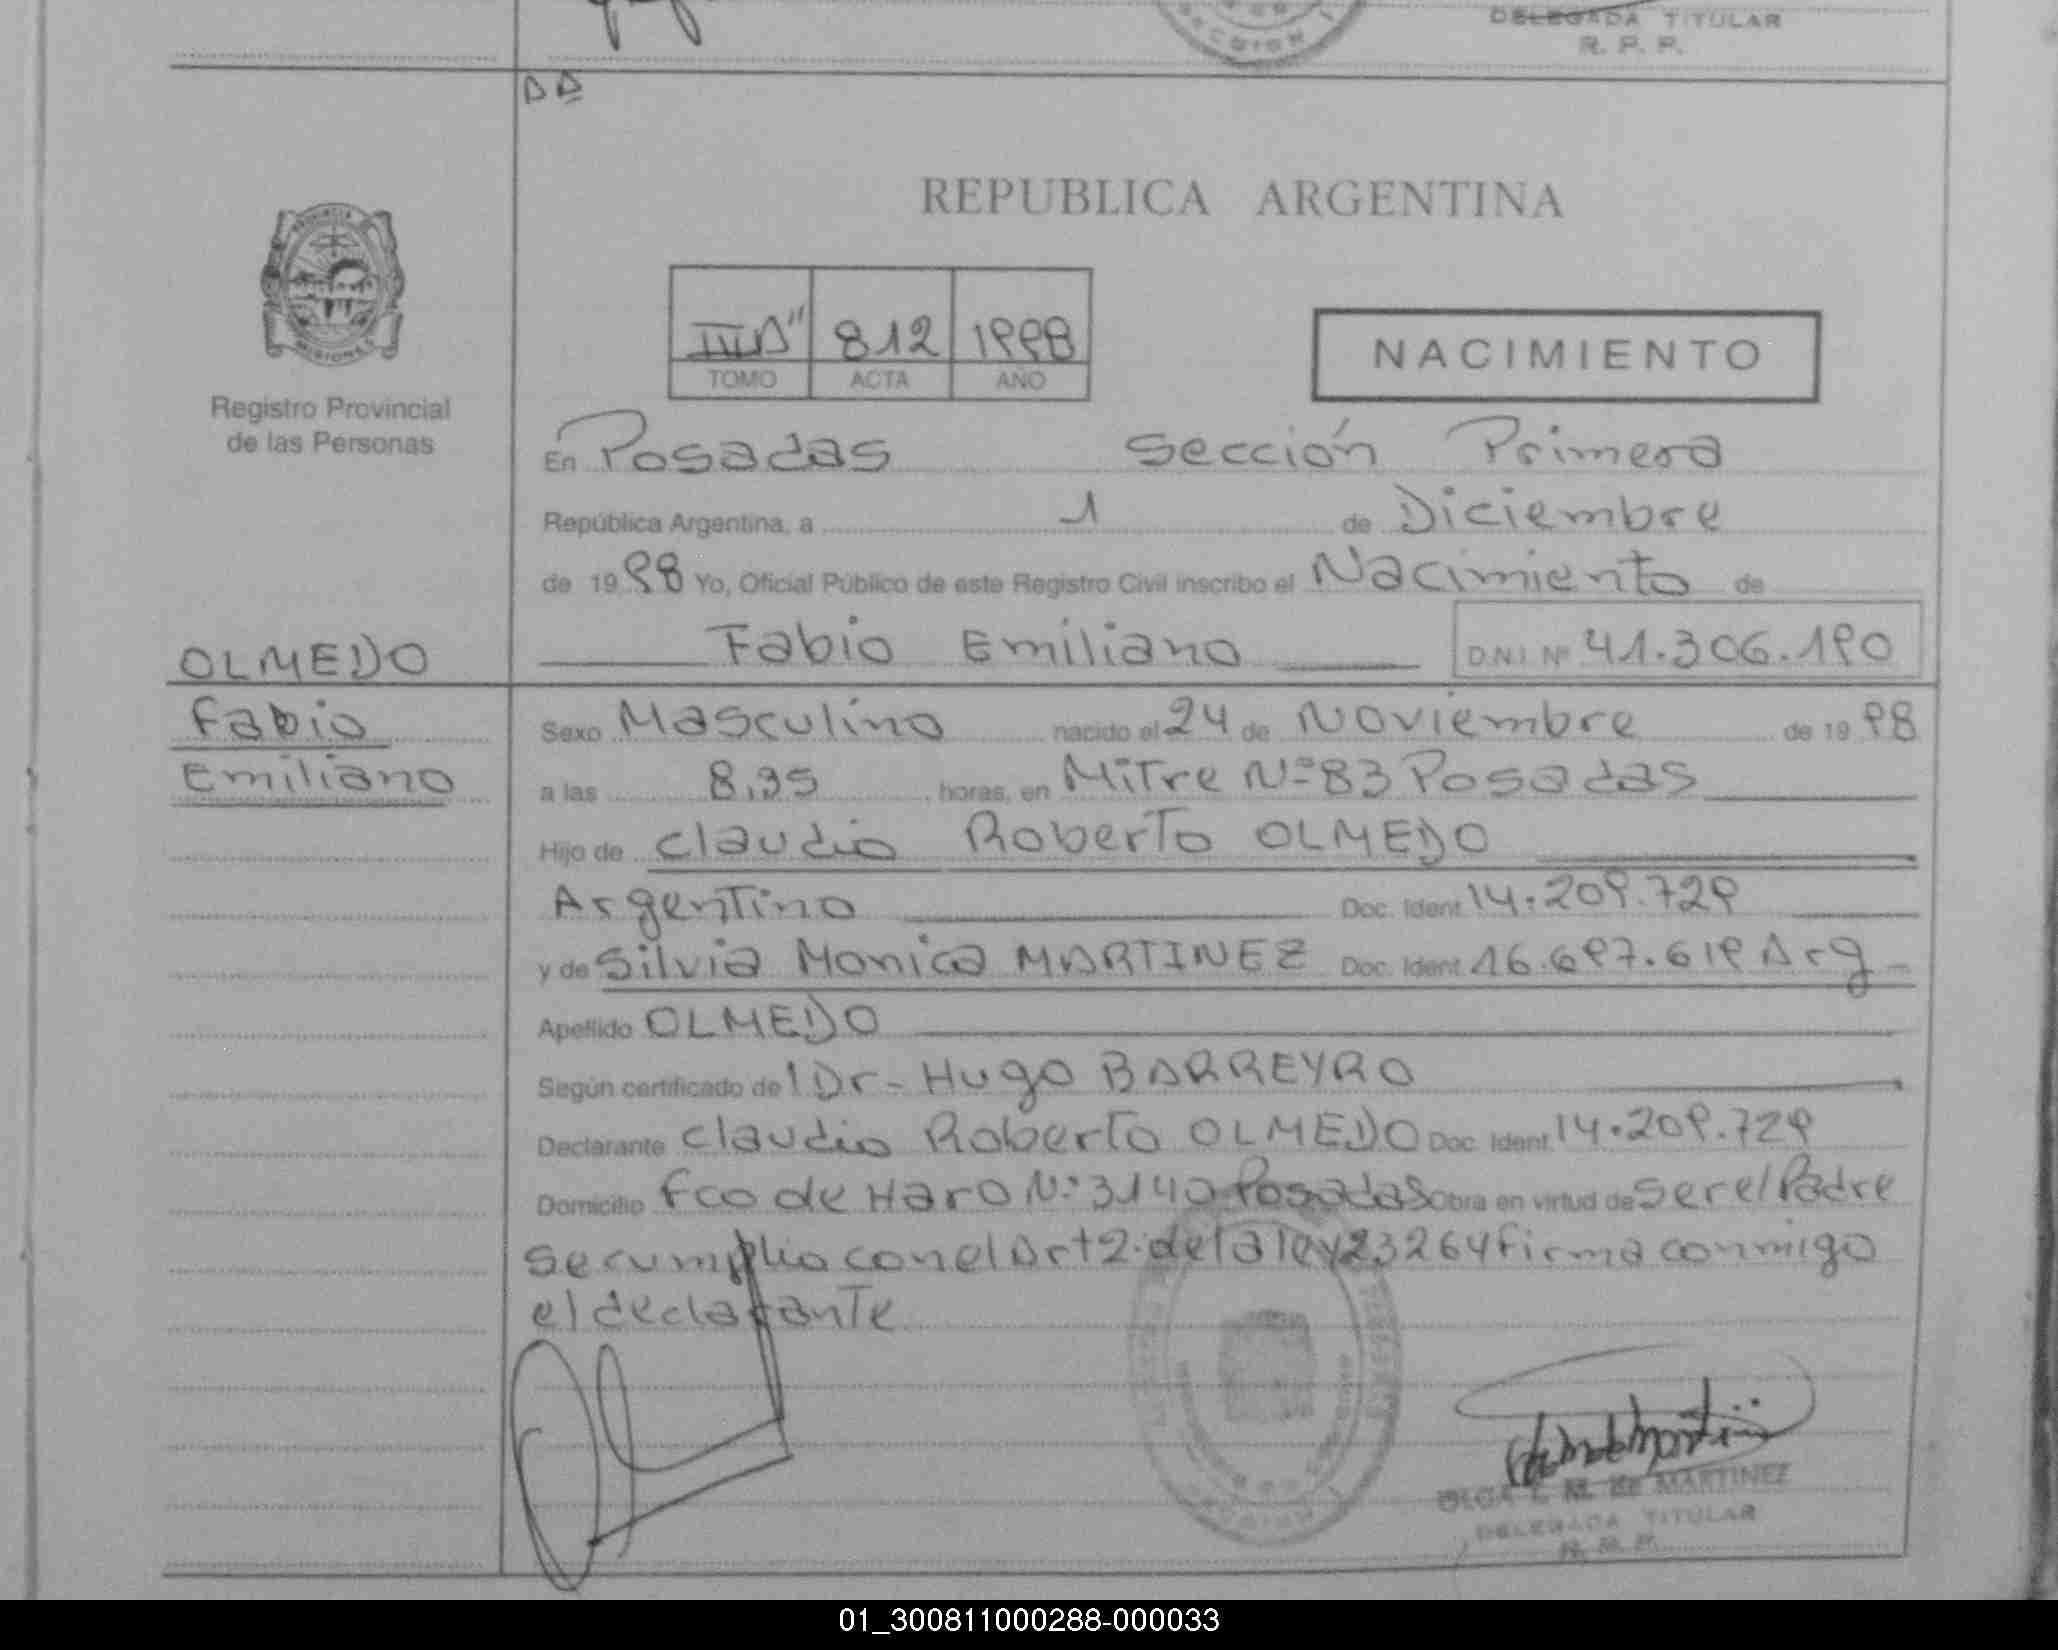 DELEGADA TITULAR
R. P. P.
REPUBLICA ARGENTINA
PROVINCIA
MISIONES
Registro Provincial
de las Personas
812 1998
TOMO ACTA AÑO
NACIMIENTO
En Posadas Sección Primera
República Argentina, a 1 de Diciembre
de 1998 Yo, Oficial Público de este Registro Civil inscribo el Nacimiento de
Fabio Emiliano D.N.I. Nº 41.306.190
OLMEDO
Fabio
Emiliano
Sexo Masculino nacido el 24 de Noviembre de 1998
a las 8,35 horas, en Mitre Nº 83 Posadas
Hijo de Claudio Roberto OLMEDO
Argentino Doc. Ident. 14.209.729
y de Silvia Monica MARTINEZ Doc. Ident. 16.697.619 Arg
Apellido OLMEDO
Según certificado del Dr. Hugo BARREYRO
Declarante Claudio Roberto OLMEDO Doc. Ident. 14.209.729
Domicilio Fco de Haro Nº 3140 Posadas Obra en virtud de ser el Padre
se cumplio con el Art 2. de la ley 23264 firma conmigo
el declarante
OLGA MARTINEZ
DELEGADA TITULAR
01_300811000288-000033